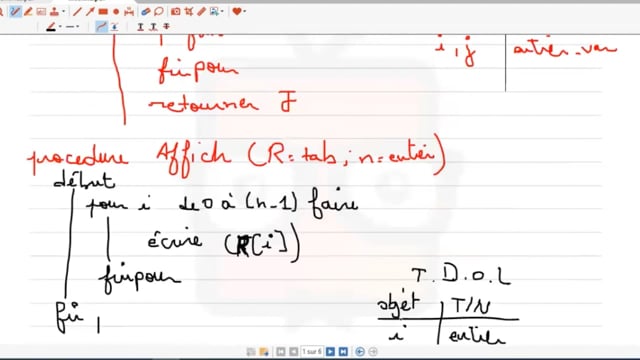 i,j entier-var
finpour
retourner F
procedure Affich (R=tab; n=entier)
début
pour i de 0 à (n-1) faire
écrire (R[i])
finpour
fin
T.D.O.L
objet T/N
i entier
1 sur 6